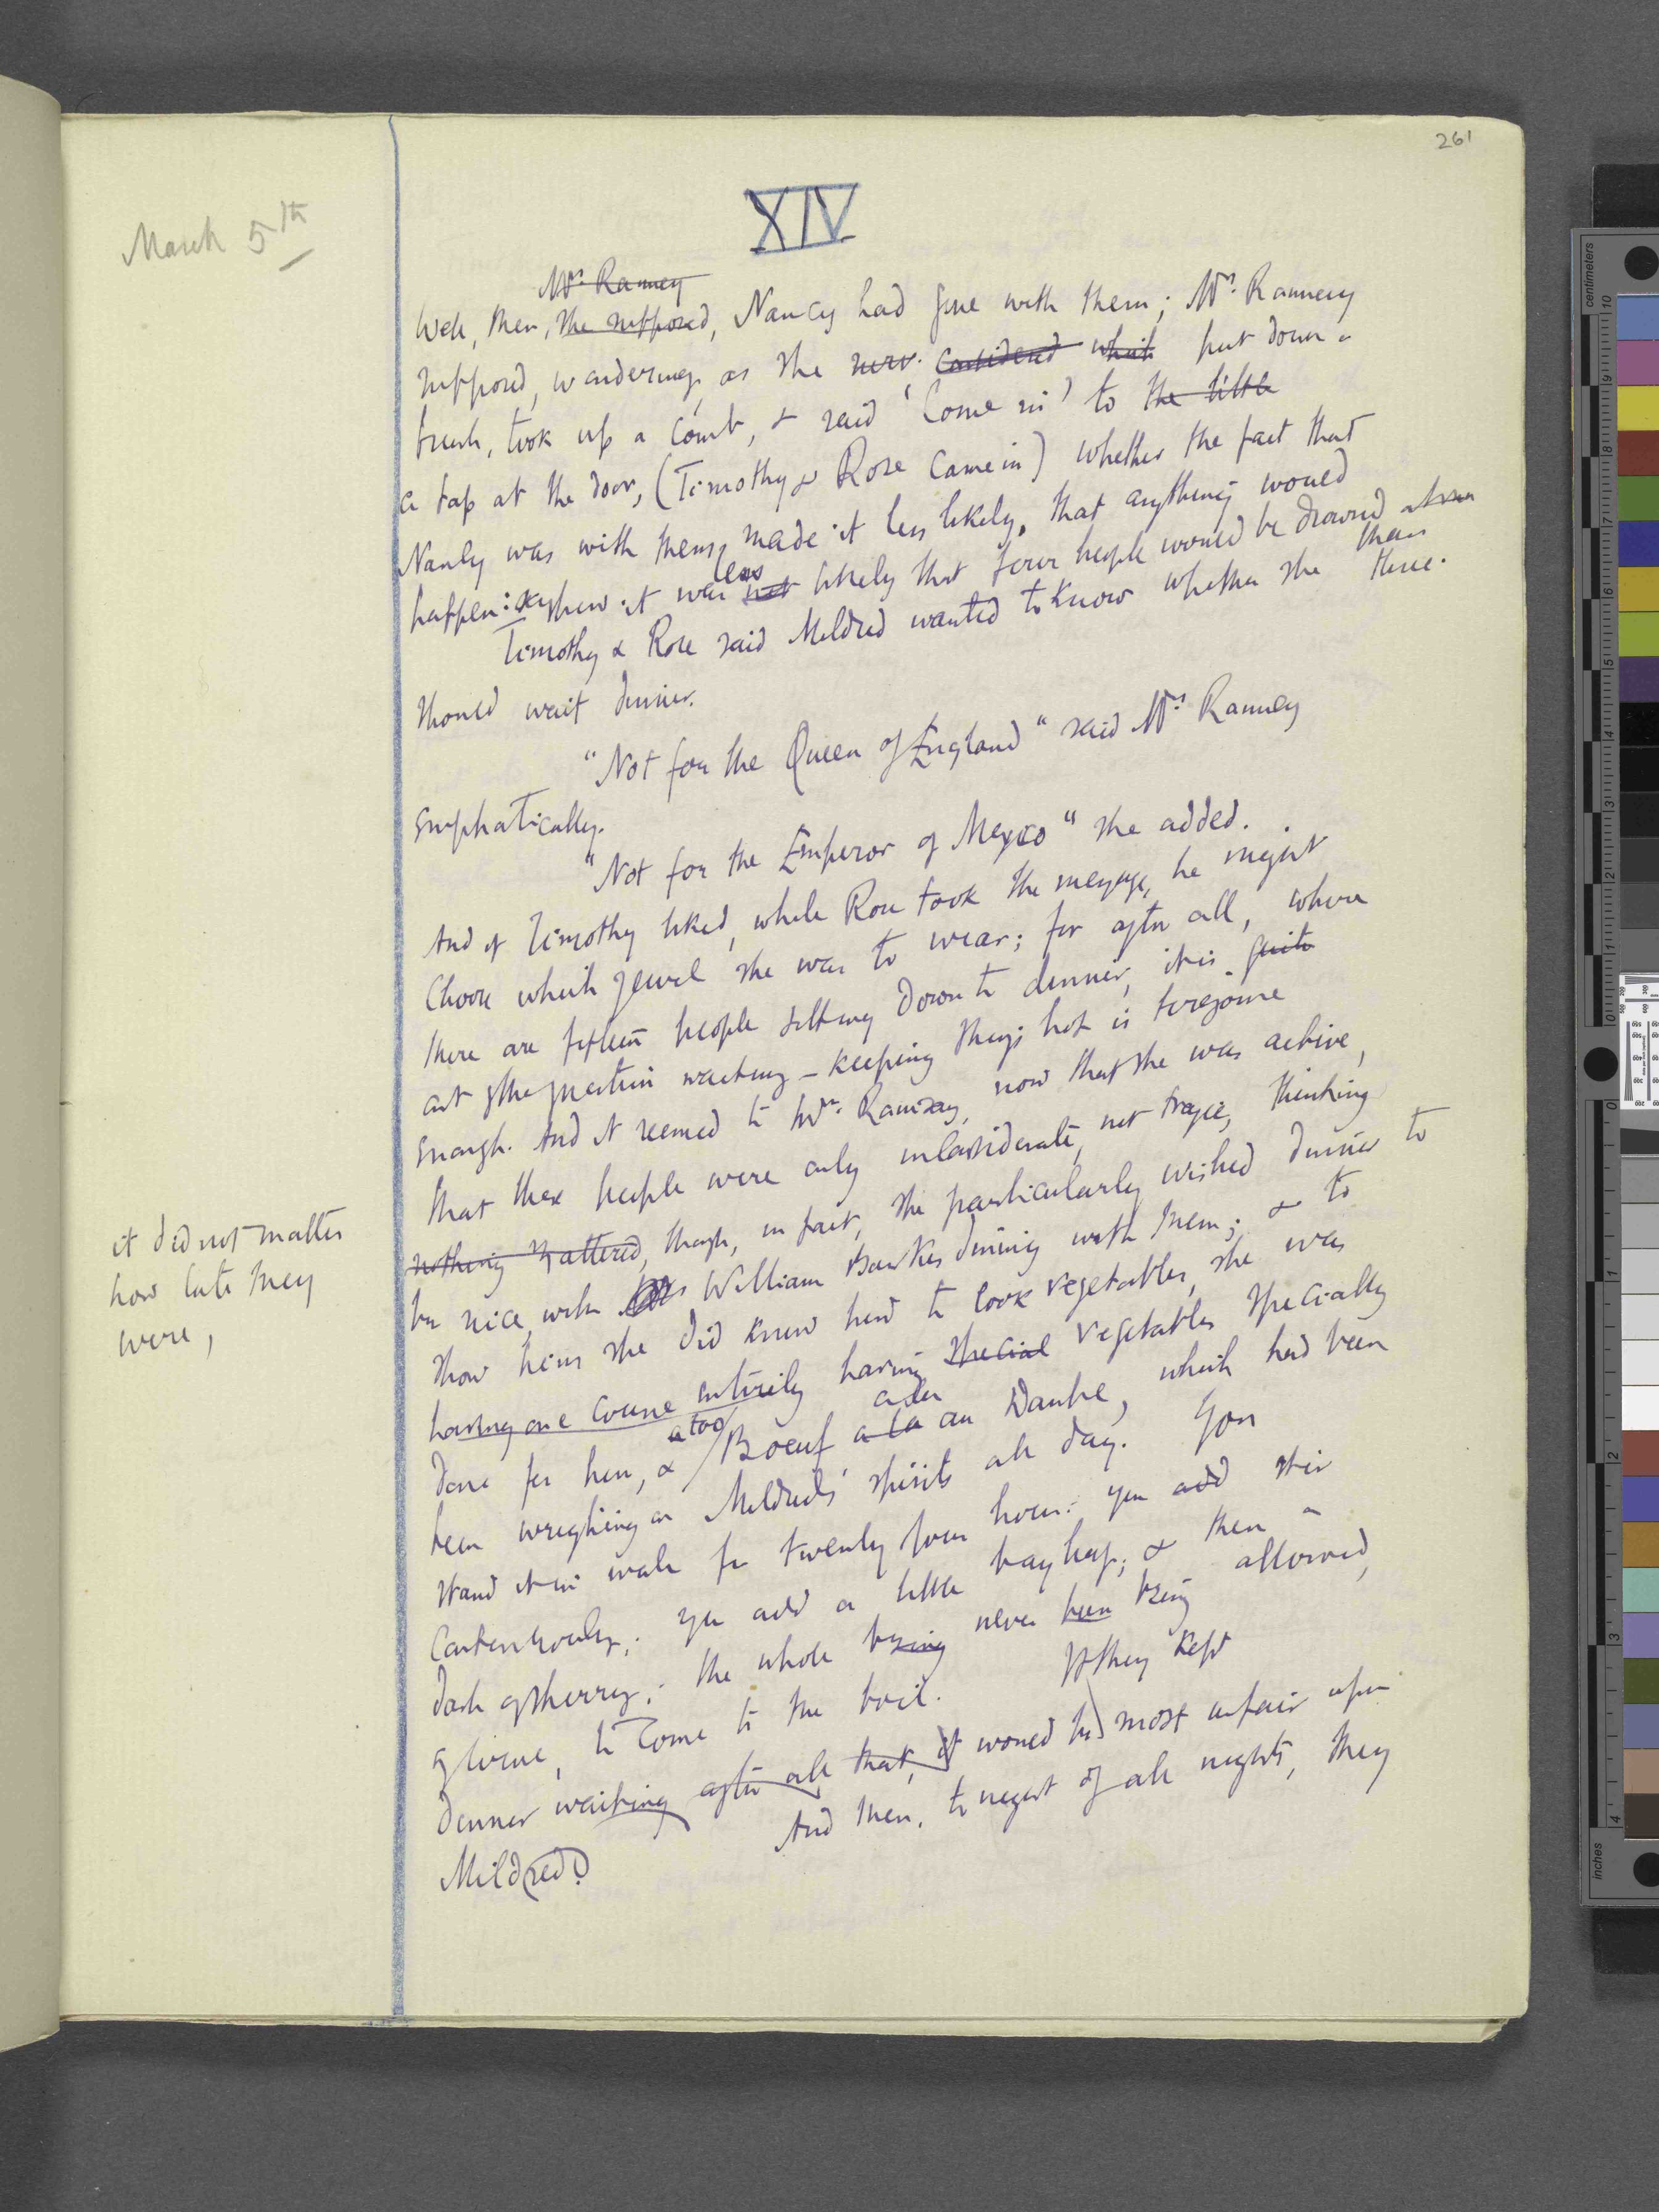 261
XIV
March 5th
Mrs Ramsey
Well, then, she supposed, Nancy had gone with them; Mrs. Ramsey
supposed, wondering, as she considered which put down a
brush, took up a comb, & said 'Come in' to the little
a tap at the door, (Timothy & Rose came in) whether the fact that
Nancy was with them, made it less likely, that anything would
happen: somehow it was not less likely that four people would be drowned than
than three.
Timothy & Rose said Mildred wanted to know whether she
should wait dinner.
"Not for the Queen of England" said Mrs. Ramsey
emphatically.
"Not for the Emperor of Mexico" she added.
And if Timothy liked, while Rose took the message, he might
choose which jewel she was to wear; for after all, where
there are fifteen people sitting down to dinner, it is quite
out of the question waiting - keeping things hot is tiresome
enough. And it seemed to Mrs. Ramsay, now that she was active,
that these people were only inconsiderate, not tragic, thinking
it did not matter
how late they
were,
nothing mattered, though, in fact, she particularly wished dinner to
be nice, with William Bankes dining with them; & to
show him she did know how to cook vegetables, she was
having one course entirely having special vegetables specially
done for him, & also Boeuf a la en Daube, which had been
been weighing on Mildred's spirits all day. You
stand it in water for twenty four hours: you add stir
continuously; you add a little bay leaf; & then a
dash of sherry; the whole being never been being allowed,
of course, to come to the boil. If they kept
dinner waiting after all that, it would be most unfair upon
Mildred. And then, tonight of all nights, they